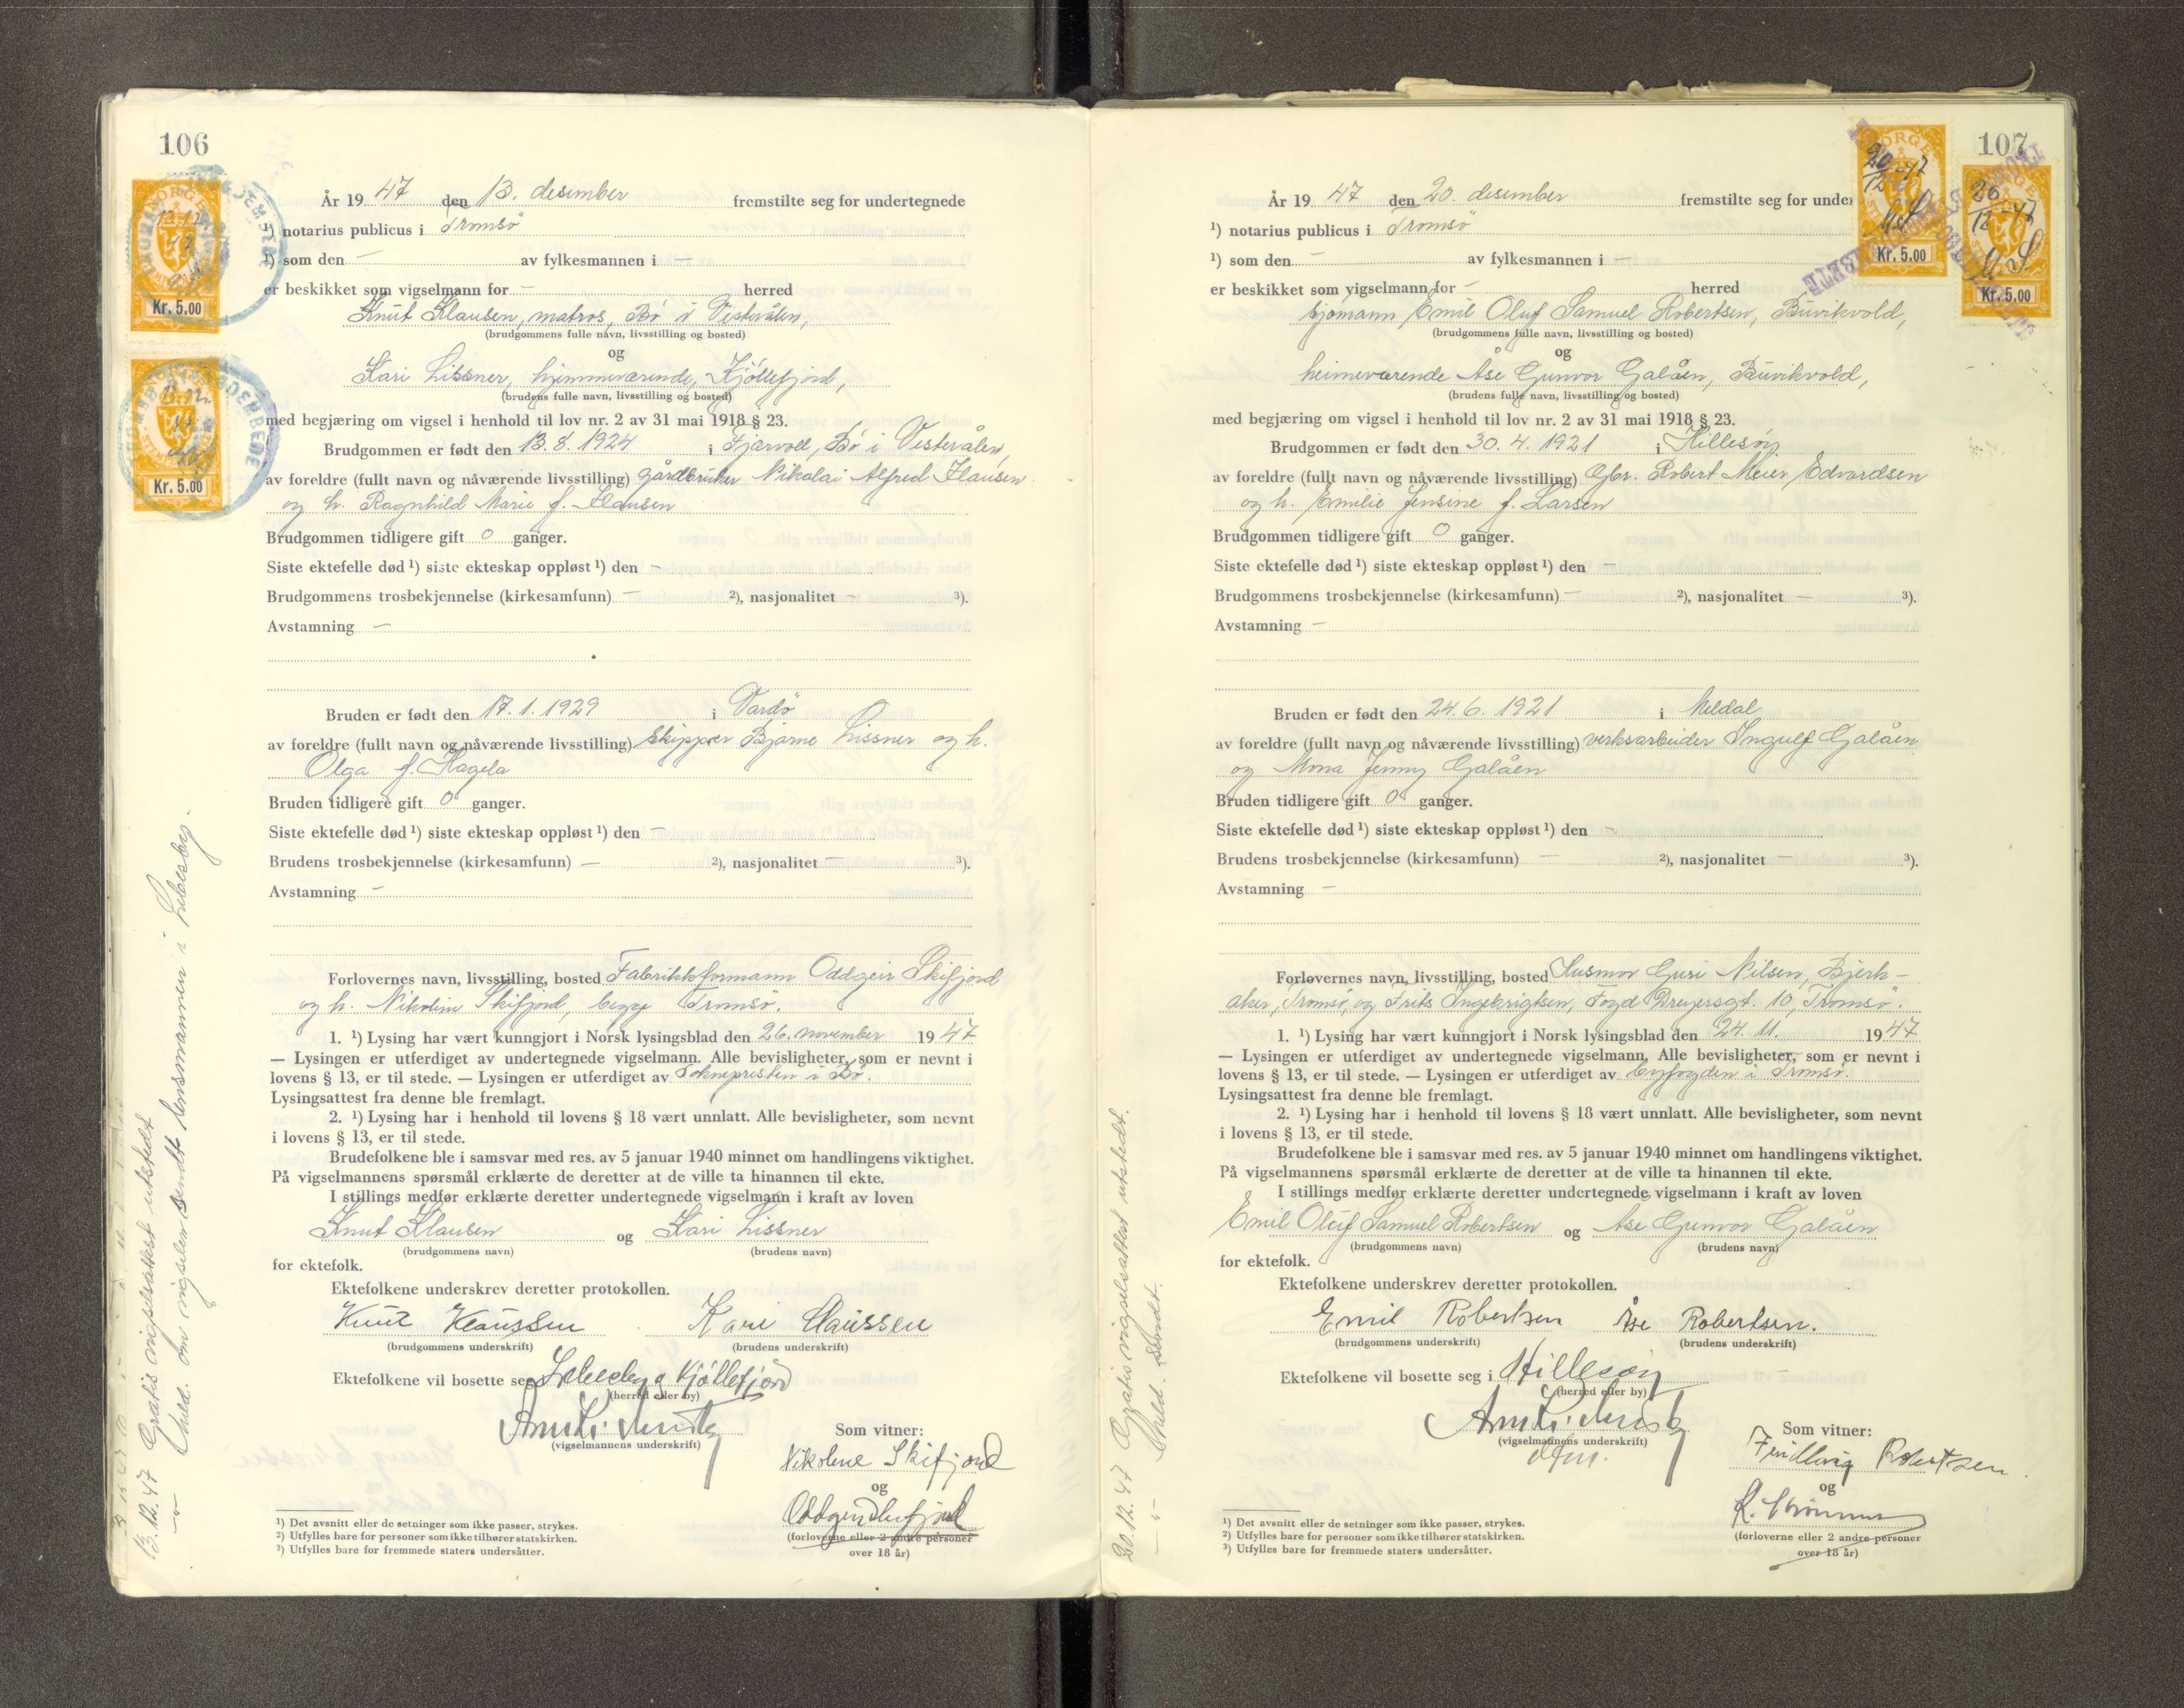 106
År 1947 den 13. desember fremstilte seg for undertegnede
¹) notarius publicus i Tromsö
¹) som den – av fylkesmannen i –
er beskikket som vigselmann for – herred
Knut Klausen, matros, Bö i Vesterålen,
(brudgommens fulle navn, livsstilling og bosted)
og
Kari Lissner, hjemmeværende, Kjöllefjord,
(brudens fulle navn, livsstilling og bosted)
med begjæring om vigsel i henhold til lov nr. 2 av 31 mai 1918 § 23.
Brudgommen er født den 13.8.1924 i Fjærvoll, Bö i Vesterålen,
av foreldre (fullt navn og nåværende livsstilling) gårdbruker Nikolai Alfred Klausen
og h. Ragnhild Marie f. Klausen
Brudgommen tidligere gift 0 ganger.
Siste ektefelle død ¹) siste ekteskap oppløst ¹) den –
Brudgommens trosbekjennelse (kirkesamfunn) – ²), nasjonalitet – ³).
Avstamning –
Bruden er født den 17.1.1929 i Vardö
av foreldre (fullt navn og nåværende livsstilling) skipper Bjarne Lissner og h.
Olga f. Hagela
Bruden tidligere gift 0 ganger.
Siste ektefelle død ¹) siste ekteskap oppløst ¹) den –
Brudens trosbekjennelse (kirkesamfunn) – ²), nasjonalitet – ³).
Avstamning –
Forlovernes navn, livsstilling, bosted Fabrikkformann Oddgeir Skifjord
og h. Nikoline Skifjord, begge Tromsö.
1. ¹) Lysing har vært kunngjort i Norsk lysingsblad den 26. november 1947
— Lysingen er utferdiget av undertegnede vigselmann. Alle bevisligheter, som er nevnt i
lovens § 13, er til stede. — Lysingen er utferdiget av Soknepresten i Bö.
Lysingsattest fra denne ble fremlagt.
2. ¹) Lysing har i henhold til lovens § 18 vært unnlatt. Alle bevisligheter, som nevnt
i lovens § 13, er til stede.
Brudefolkene ble i samsvar med res. av 5 januar 1940 minnet om handlingens viktighet.
På vigselmannens spørsmål erklærte de deretter at de ville ta hinannen til ekte.
I stillings medfør erklærte deretter undertegnede vigselmann i kraft av loven
Knut Klausen og Kari Lissner
(brudgommens navn) (brudens navn)
for ektefolk.
Ektefolkene underskrev deretter protokollen.
Knut Klaussen Kari Claussen
(brudgommens underskrift) (brudens underskrift)
Ektefolkene vil bosette seg Lebesby, Kjöllefjord
(herred eller by)
(vigselmannens underskrift)
Som vitner:
Nikoline Skifjord
og
Oddgeir Skifjord
(forloverne eller 2 andre personer
over 18 år)
¹) Det avsnitt eller de setninger som ikke passer, strykes.
²) Utfylles bare for personer som ikke tilhører statskirken.
³) Utfylles bare for fremmede staters undersåtter.
13.12.47 Gratis vigselsattest utstedt
— " — Meld. om vigselen sendt lensmannen i Lebesby.
NORGE
Kr. 5.00
NORGE
Kr. 5.00
107
År 1947 den 20. desember fremstilte seg for under
¹) notarius publicus i Tromsö
¹) som den – av fylkesmannen i –
er beskikket som vigselmann for – herred
sjömann Emil Oluf Samuel Robertsen, Buvikvold,
(brudgommens fulle navn, livsstilling og bosted)
og
heimeværende Åse Gunvor Galåen, Buvikvold,
(brudens fulle navn, livsstilling og bosted)
med begjæring om vigsel i henhold til lov nr. 2 av 31 mai 1918 § 23.
Brudgommen er født den 30.4.1921 i Hillesöy
av foreldre (fullt navn og nåværende livsstilling) Gbr. Robert Meier Edvardsen
og h. Emilie Jensine f. Larsen
Brudgommen tidligere gift 0 ganger.
Siste ektefelle død ¹) siste ekteskap oppløst ¹) den –
Brudgommens trosbekjennelse (kirkesamfunn) – ²), nasjonalitet – ³).
Avstamning –
Bruden er født den 24.6.1921 i Meldal
av foreldre (fullt navn og nåværende livsstilling) verksarbeider Ingulf Galåen
og Mona Jenny Galåen
Bruden tidligere gift 0 ganger.
Siste ektefelle død ¹) siste ekteskap oppløst ¹) den –
Brudens trosbekjennelse (kirkesamfunn) – ²), nasjonalitet – ³).
Avstamning –
Forlovernes navn, livsstilling, bosted Husmor Guri Nilsen, Bjerk-
aker, Tromsö, og Frits Ingebrigtsen, Fogd Dreyersgt. 10, Tromsö.
1. ¹) Lysing har vært kunngjort i Norsk lysingsblad den 24. 11. 1947
— Lysingen er utferdiget av undertegnede vigselmann. Alle bevisligheter, som er nevnt i
lovens § 13, er til stede. — Lysingen er utferdiget av byfogden i Tromsö.
Lysingsattest fra denne ble fremlagt.
2. ¹) Lysing har i henhold til lovens § 18 vært unnlatt. Alle bevisligheter, som nevnt
i lovens § 13, er til stede.
Brudefolkene ble i samsvar med res. av 5 januar 1940 minnet om handlingens viktighet.
På vigselmannens spørsmål erklærte de deretter at de ville ta hinannen til ekte.
I stillings medfør erklærte deretter undertegnede vigselmann i kraft av loven
Emil Oluf Samuel Robertsen og Åse Gunvor Galåen
(brudgommens navn) (brudens navn)
for ektefolk.
Ektefolkene underskrev deretter protokollen.
Emil Robertsen Åse Robertsen.
(brudgommens underskrift) (brudens underskrift)
Ektefolkene vil bosette seg i Hillesöy
(herred eller by)
(vigselmannens underskrift)
Som vitner:
Robertsen
og
(forloverne eller 2 andre personer
over 18 år)
¹) Det avsnitt eller de setninger som ikke passer, strykes.
²) Utfylles bare for personer som ikke tilhører statskirken.
³) Utfylles bare for fremmede staters undersåtter.
20.12.47 Gratis vigselsattest utstedt.
— " — Meld. sendt.
NORGE
20/12-47
Kr. 5.00
NORGE
Kr. 5.00